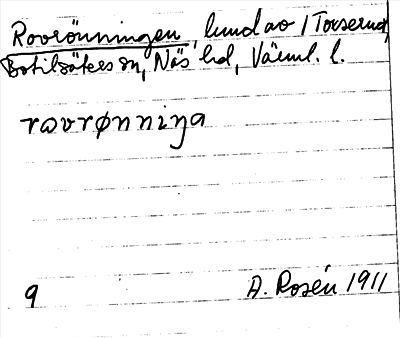 Rovrönningen, lund av 1 Torserud,
Botilsäters sn, Näs hd, Värml. l.
rωvrønniŋa
9 A. Rosén 1911